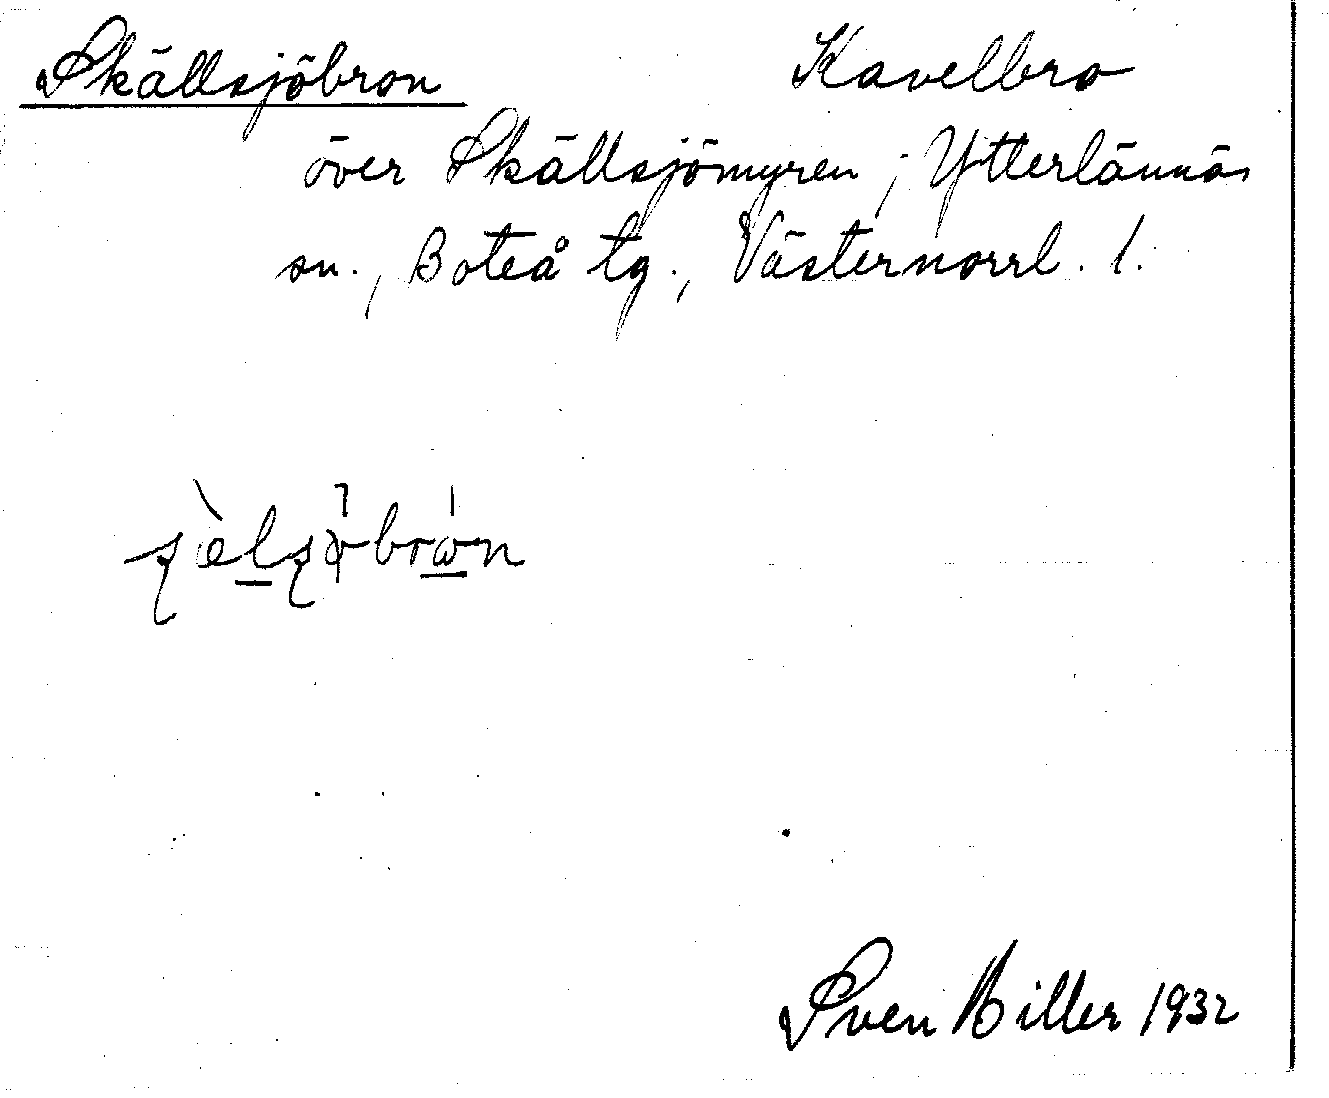 Skällsjöbron Kavelbro
över Skällsjömyren, Ytterlännäs
sn., Boteå tg., Västernorrl. l.
Sven Hiller 1932